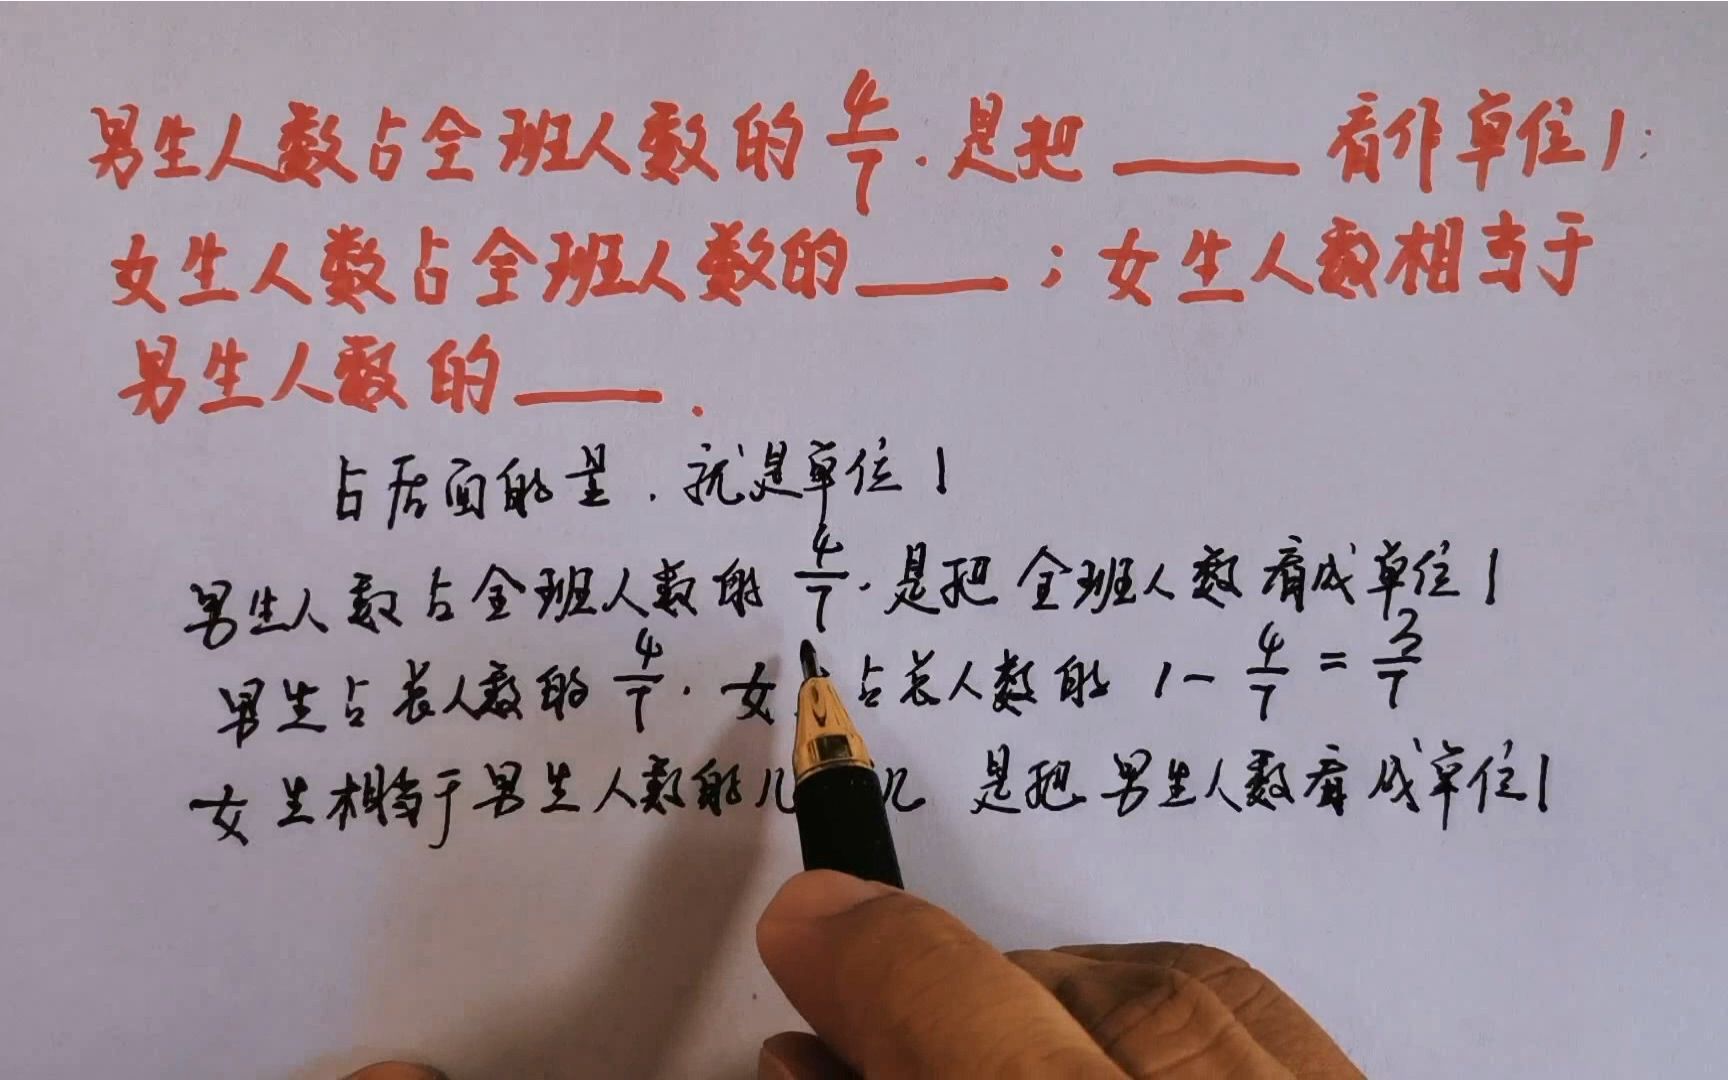 男生人数占全班人数的4/7.是把____看作单位1:
女生人数占全班人数的____;女生人数相当于
男生人数的____.
占后面的量.就是单位1
男生人数占全班人数的4/7.是把全班人数看成单位1
男生占总人数的4/7.女占总人数的1-4/7=3/7
女生相当于男生人数的几几 是把男生人数看成单位1